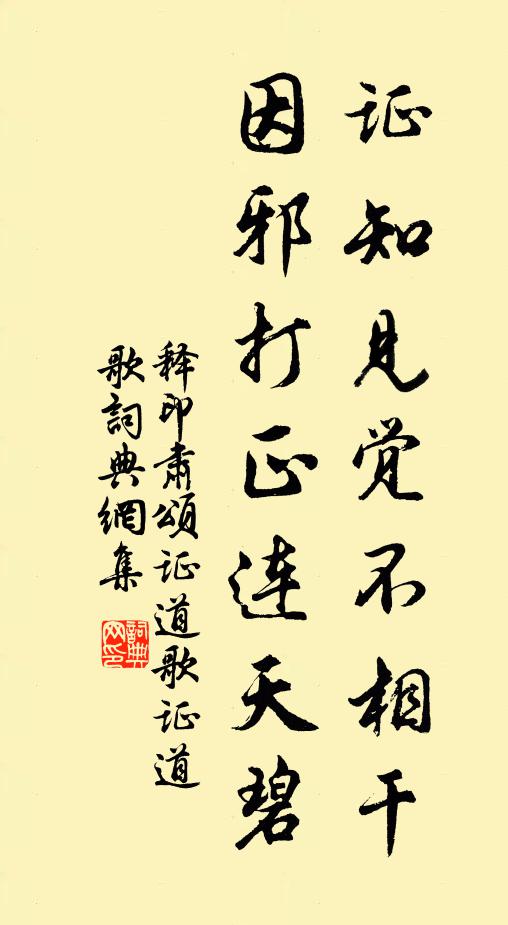 证知见觉不相干
因邪打正连天碧
释印肃颂证道歌证道
歌詞典網集
詞典网印